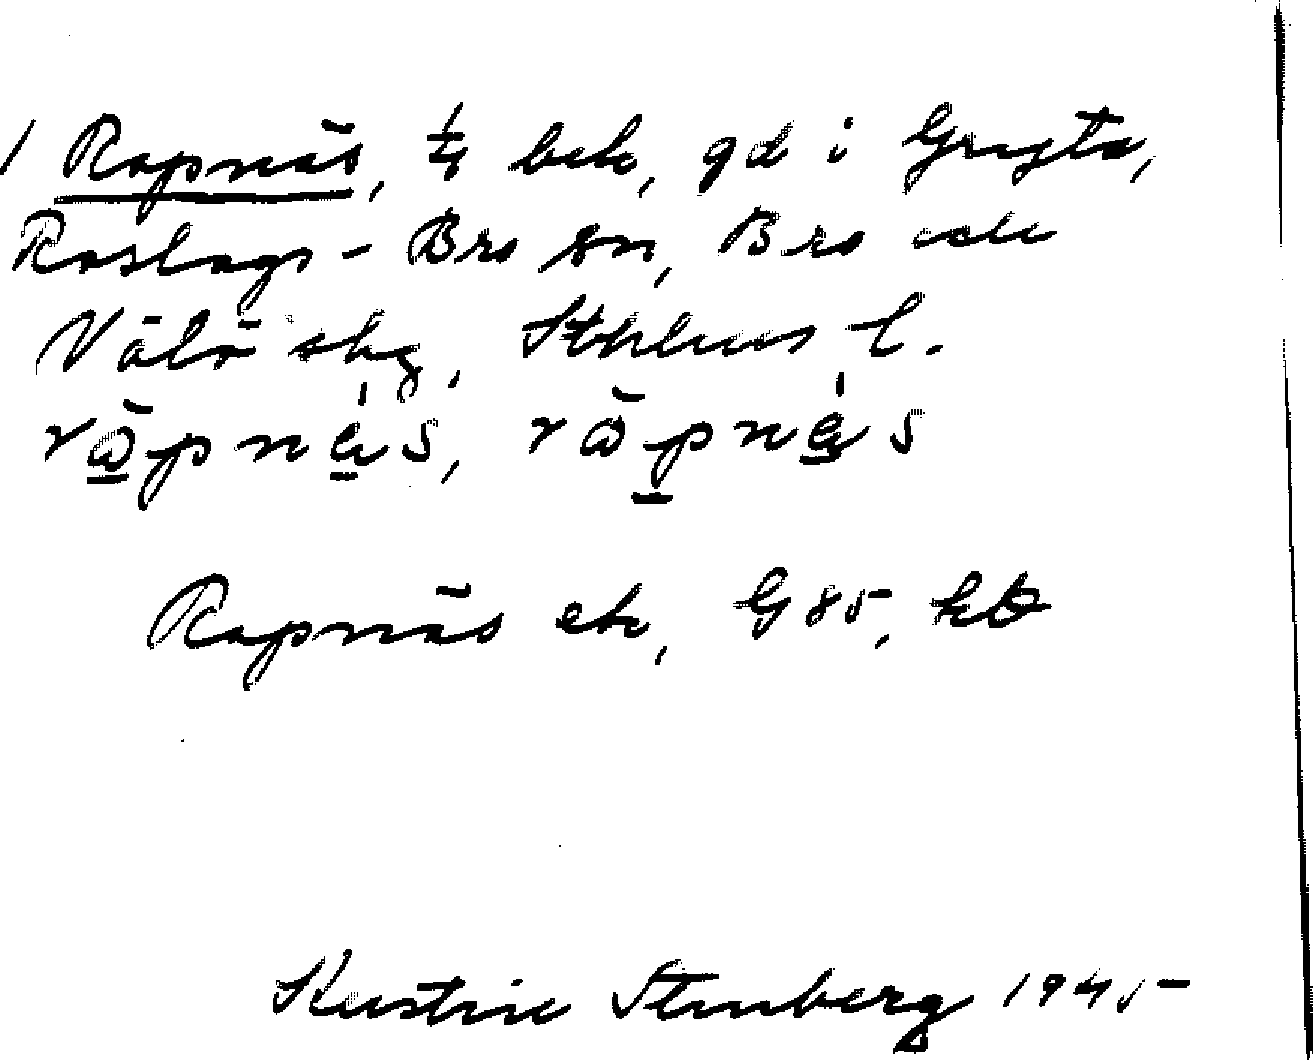 1 Rapnäs, 1/4 bek, gd i Gryta,
Roslags-Bro sn, Bro och
Vätö skg, Sthlms l.
Rapnäs ek, G 85, kb
Kerstin Stenberg 1945